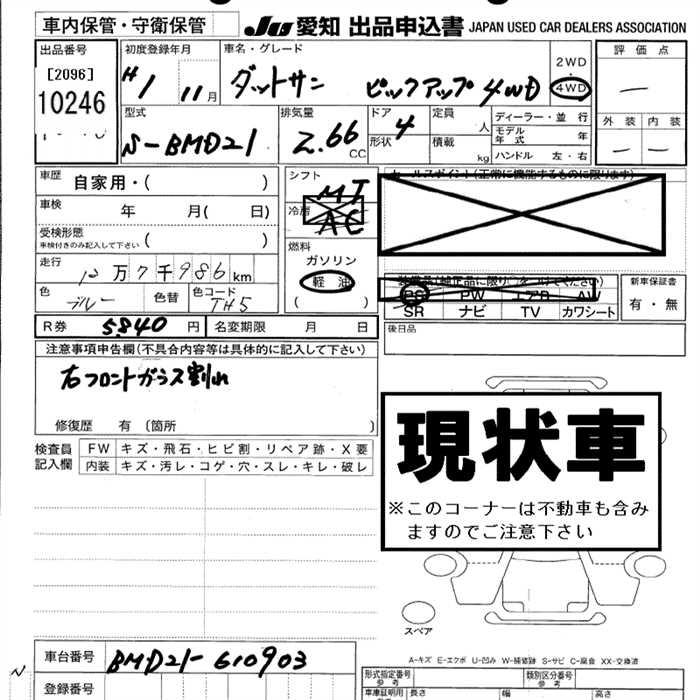 車内保管・守衛保管
JU 愛知 出品申込書 JAPAN USED CAR DEALERS ASSOCIATION
出品番号
[2096]
10246
初度登録年月
H1 11月
車名・グレード
ダットサン ピックアップ 4WD
2WD
・
4WD
評価点
—
外装 内装
— —
型式
S-BMD21
排気量
2.66 CC
ドア
形状
4
定員
人
積載
kg
ディーラー・並行
モデル年式 年
ハンドル 左・右
車歴
自家用・( )
車検
年 月( 日)
受検形態
車検付きのみ記入して下さい ( )
走行
12万7千986km
色
ブルー
色替
色コード
TH5
シフト
MT
冷房
AC
燃料
ガソリン
軽油
( )
セールスポイント(正常に機能するものに限ります)
装備品(純正品に限り○をつけてください)
PS PW エアB AW
SR ナビ TV カワシート
新車保証書
有・無
後日品
R券 5840 円
名変期限 月 日
注意事項申告欄(不具合内容等は具体的に記入して下さい)
右フロントガラス割れ
修復歴 有 〔箇所 〕
現状車
※このコーナーは不動車も含み
ますのでご注意下さい
検査員
記入欄
FW キズ・飛石・ヒビ割・リペア跡・X要
内装 キズ・汚レ・コゲ・穴・スレ・キレ・破レ
スペア
A-キズ E-エクボ U-凹み W-補修跡 S-サビ C-腐食 XX-交換済
車台番号
BMD21-610903
登録番号
型式指定番号
参考
類別区分番号
参考
車庫証明用
長さ
幅
高さ
N